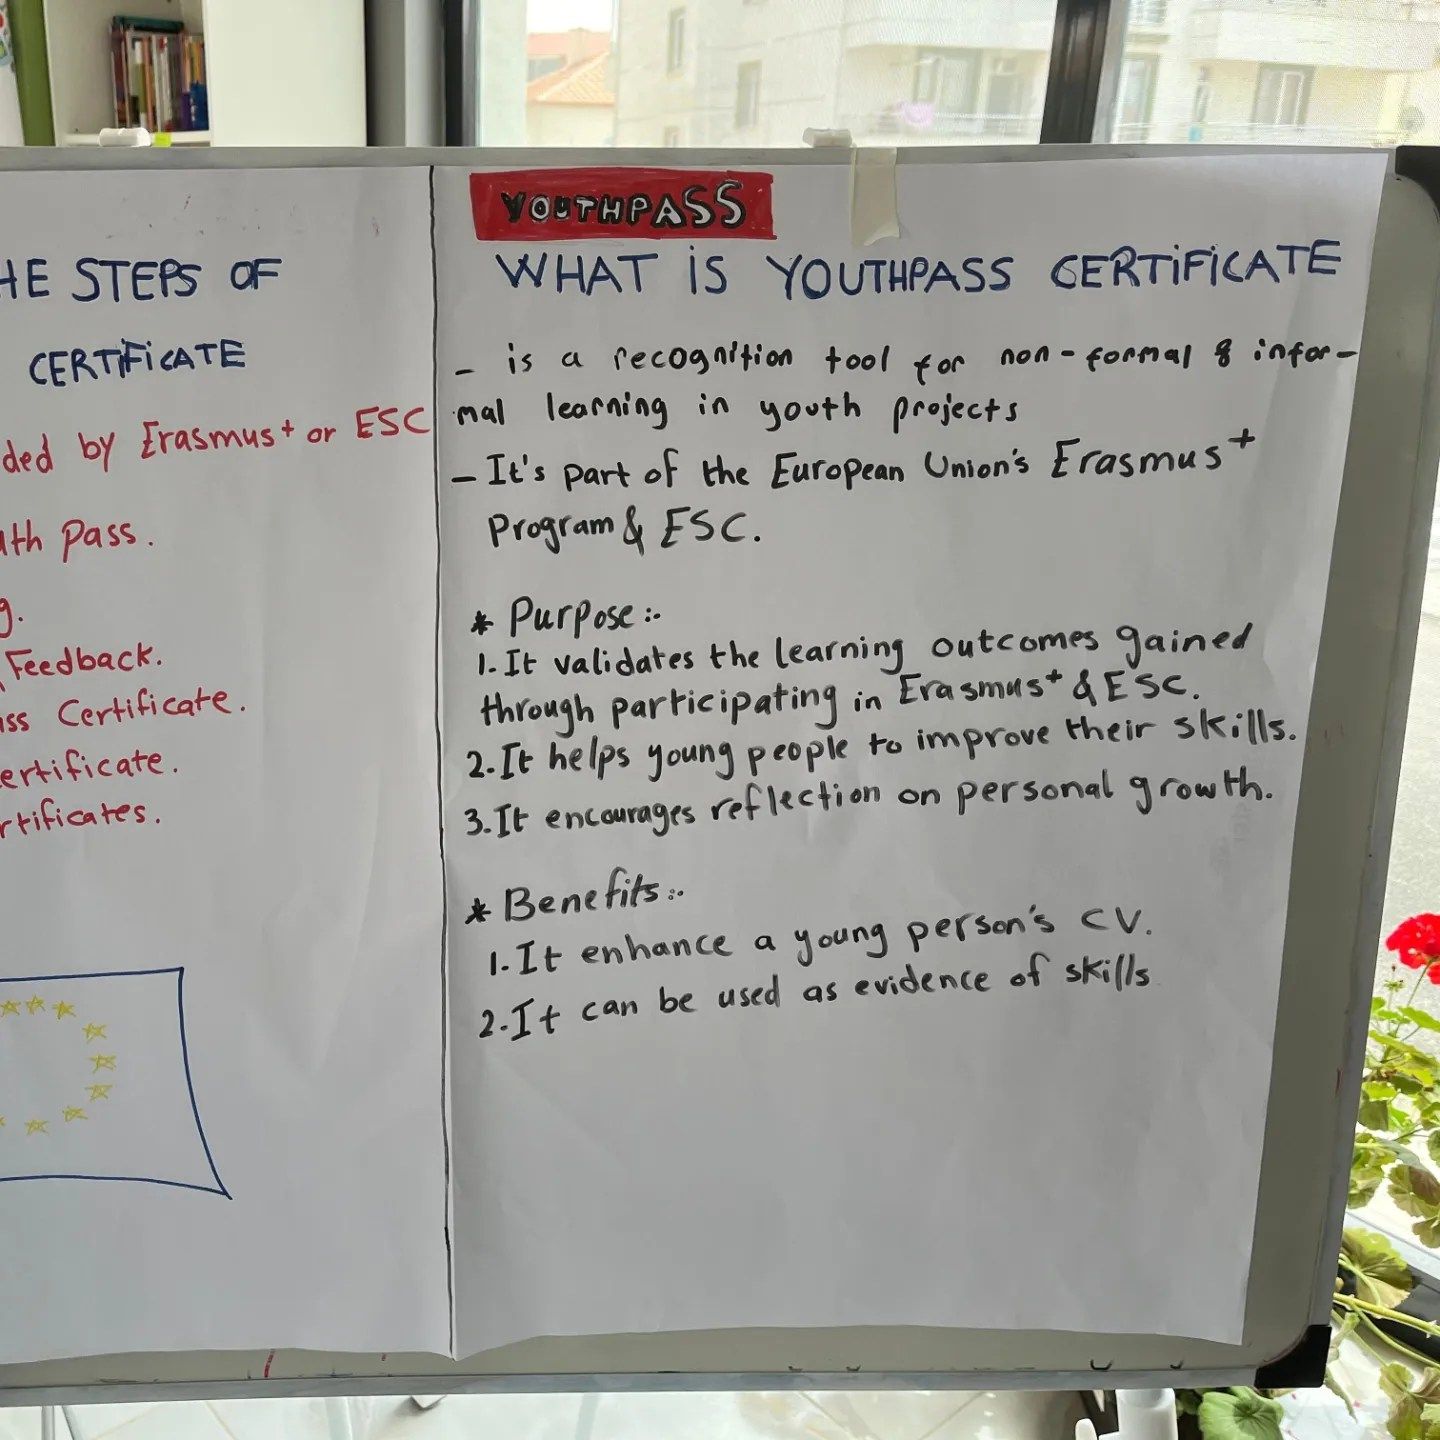 HE STEPS OF
CERTIFICATE
ded by Erasmus+ or ESC
uth Pass.
g.
Feedback.
ass Certificate.
ertificate.
rtificates.
YOUTHPASS
WHAT iS YOUTHPASS CERTiFiCATE
- is a recognition tool for non-formal & infor-
mal learning in youth projects
- It's part of the European Union's Erasmus+
Program & ESC.
* Purpose:-
1. It validates the learning outcomes gained
through participating in Erasmus+ & ESC.
2. It helps young people to improve their skills.
3. It encourages reflection on personal growth.
* Benefits:-
1. It enhance a young person's CV.
2. It can be used as evidence of skills